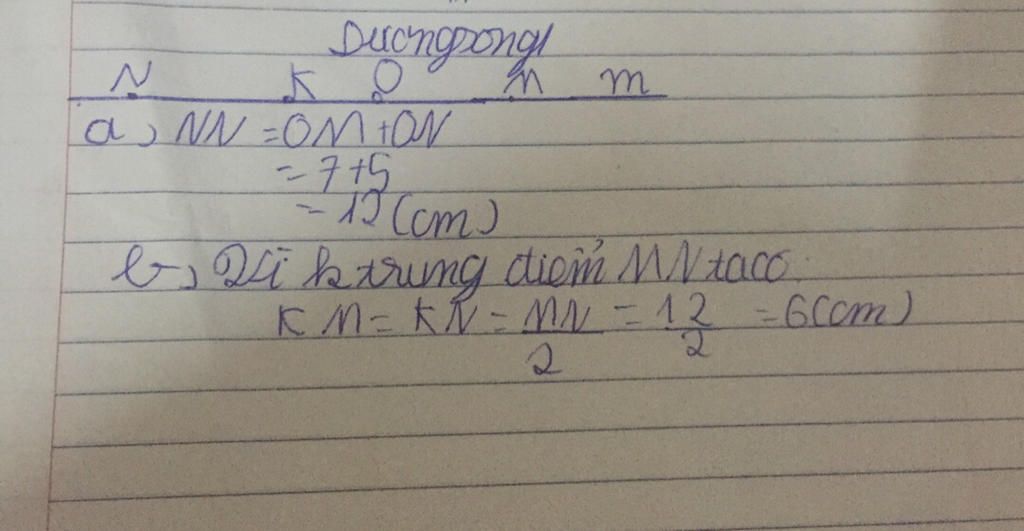 Duongzong
N K O M m
a, NN = OM + ON
= 7 + 5
= 12 (cm)
b, Vì k trung điểm MN ta co
KM = KN = MN/2 = 12/2 = 6 (cm)